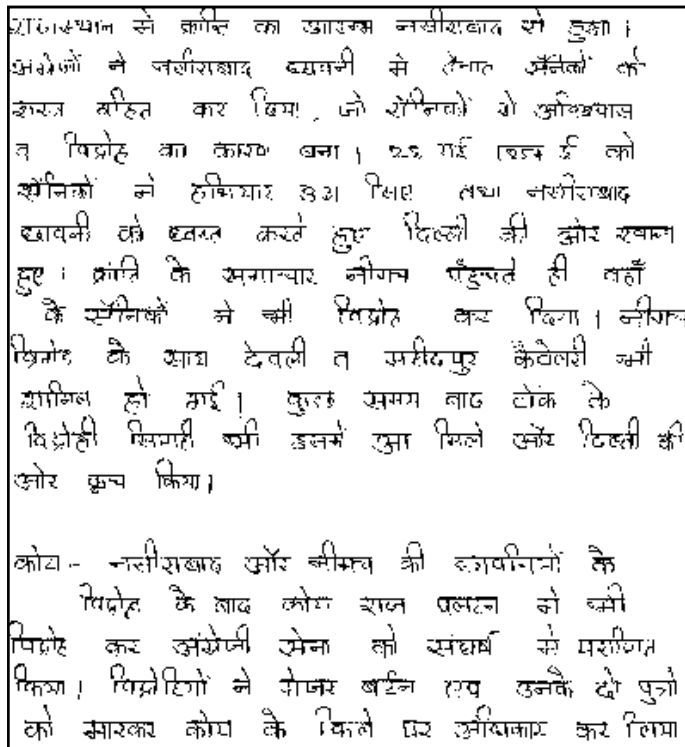 राजस्थान से क्रांति का आरम्भ नसीराबाद से हुआ।
अंग्रेजों ने नसीराबाद छावनी में तैनात सैनिकों को
शस्त्र रहित कर दिया, जो सैनिकों में अविश्वास
व विद्रोह का कारण बना। 28 मई 1857 ई को
सैनिकों ने हथियार उठा लिए तथा नसीराबाद
छावनी को ध्वस्त करते हुए दिल्ली की ओर रवाना
हुए। क्रांति के समाचार नीमच पँहुचते ही वहाँ
के सैनिकों ने भी विद्रोह कर दिया। नीमच
विद्रोह के साथ देवली व महीदपुर कैवेलरी भी
शामिल हो गई। कुछ समय बाद टोंक के
विद्रोही सिपाही भी इसमें आ मिले और दिल्ली की
ओर कूच किया।
कोटा - नसीराबाद और नीमच की छावनियों के
विद्रोह के बाद कोटा राज पलटन ने भी
विद्रोह कर अंग्रेजी सेना को संघर्ष में पराजित
किया। विद्रोहियों ने मेजर बर्टन एवं उनके दो पुत्रो
को मारकर कोटा के किले पर अधिकार कर लिया